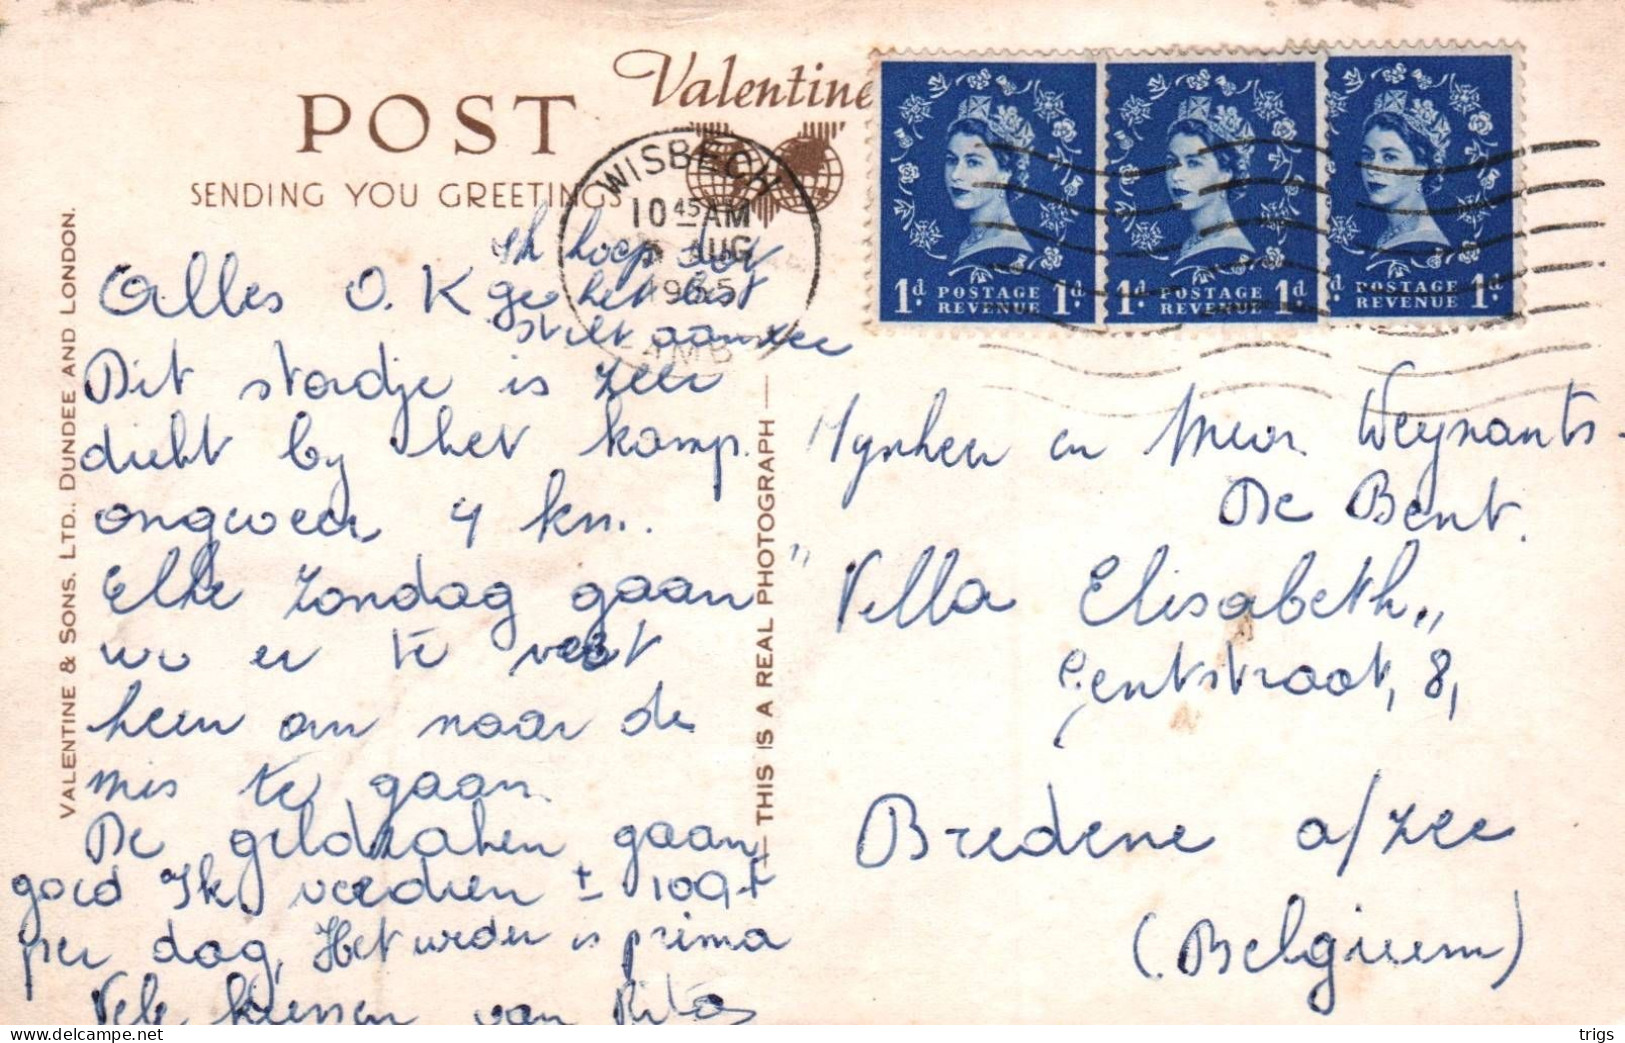 POST
Valentine
SENDING YOU GREETINGS
WISBECH
10 45 AM
AUG
1965
CAMB
1d POSTAGE REVENUE 1d
1d POSTAGE REVENUE 1d
1d POSTAGE REVENUE 1d
VALENTINE & SONS. LTD., DUNDEE AND LONDON.
THIS IS A REAL PHOTOGRAPH
Ik hoop dat
ge het best
stelt aan zee
Alles O.K
Dit stadje is zeer
dicht by het kamp.
ongeveer 4 km.
Elke Zondag gaan
we er te voet
heen om naar de
mis te gaan.
De geldzaken gaan
goed Ik verdien ± 100 f
per dag, Het weder is prima
Vele kussen van Rita
Mynheer en Mevr Weynants
De Bent.
"Villa Elisabeth"
Gentstraat, 8,
Bredene a/zee
(Belgium)
trigs